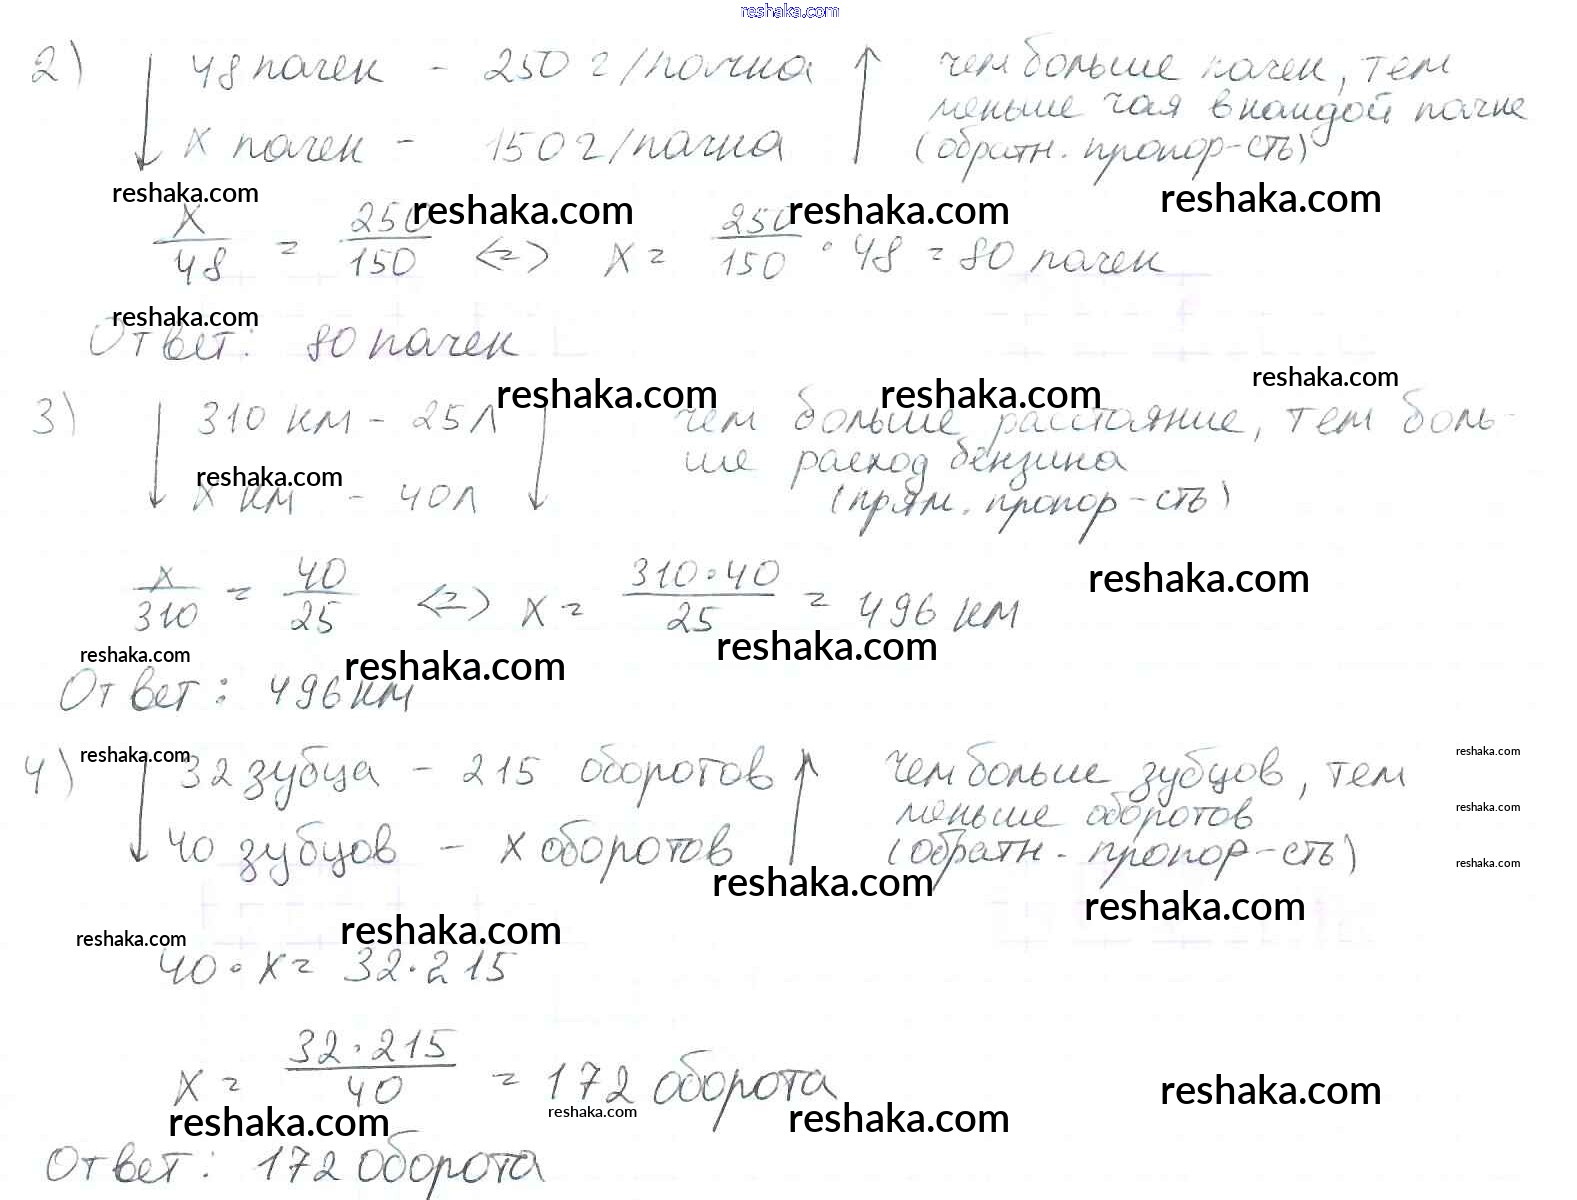 reshaka.com
2) 48 пачек - 250 г/пачка чем больше пачек, тем
меньше чая в каждой пачке
x пачек - 150 г/пачка (обратн. пропор-сть)
reshaka.com reshaka.com reshaka.com reshaka.com
x/48 = 250/150 <=> x = 250/150 · 48 = 80 пачек
reshaka.com
Ответ: 80 пачек
reshaka.com reshaka.com reshaka.com
3) 310 км - 25 л чем больше расстояние, тем боль-
ше расход бензина
reshaka.com
x км - 40 л (прям. пропор-сть)
x/310 = 40/25 <=> x = 310·40/25 = 496 км
reshaka.com
reshaka.com reshaka.com reshaka.com
Ответ: 496 км
reshaka.com reshaka.com
4) 32 зубца - 215 оборотов чем больше зубцов, тем
меньше оборотов
reshaka.com
40 зубцов - x оборотов (обратн. пропор-сть)
reshaka.com
reshaka.com reshaka.com
reshaka.com reshaka.com
40·x = 32·215
x = 32·215/40 = 172 оборота
reshaka.com
reshaka.com reshaka.com reshaka.com
Ответ: 172 оборота